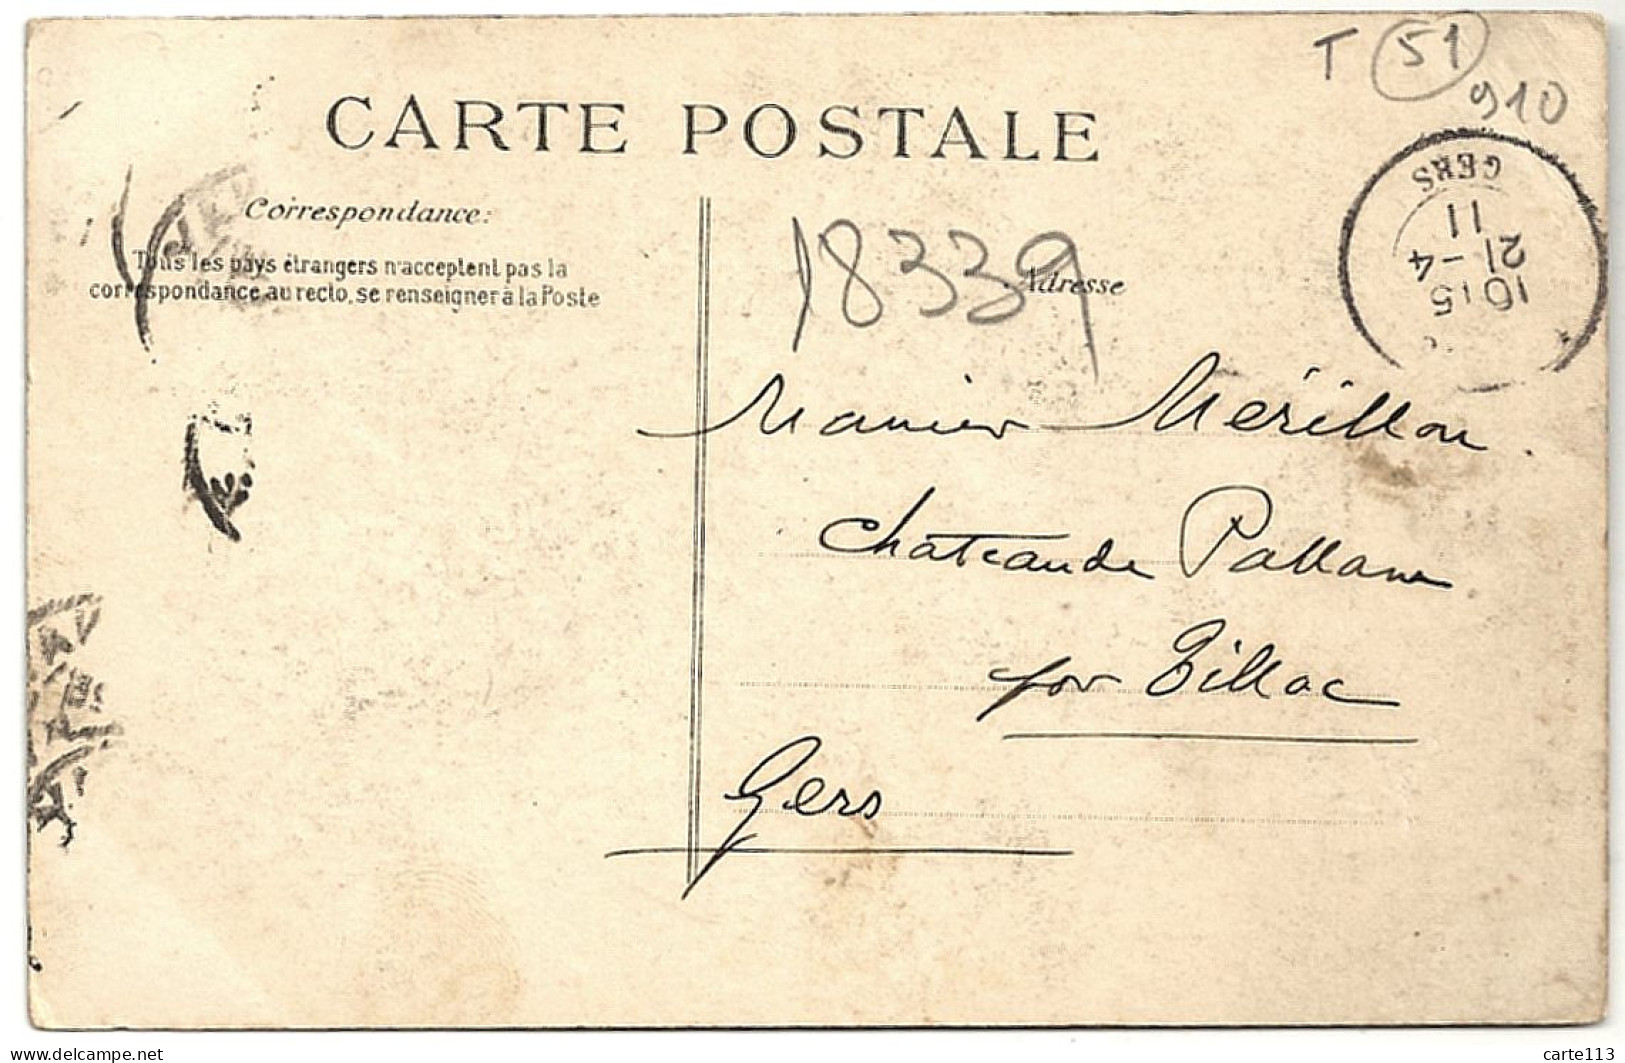 T 51
910
CARTE POSTALE
Correspondance:
Tous les pays étrangers n'acceptent pas la
correspondance au recto, se renseigner à la Poste
18339
Adresse
GERS
11
21-4
10 15
Mérillon
Chateau de Pallane
par Tillac
Gers
delcampe.net
carte113